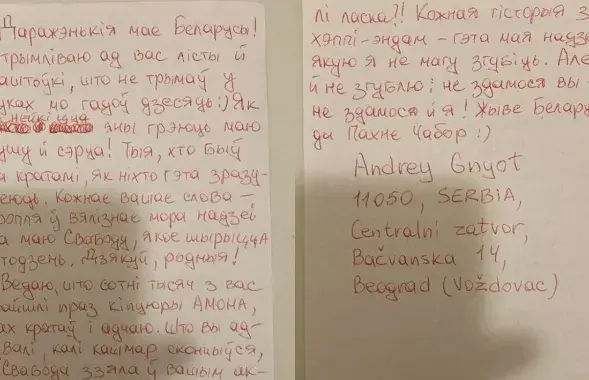 Даражэнькія мае Беларусы!
трымліваю ад вас лісты й
аштоўкі, што не трымаў у
уках мо гадоў дзесяць:) Як
нейкі цуд
яны грэюць маю
ушу й сэрца! Тыя, хто быў
а кратамі, як ніхто гэта зразу-
еюць. Кожнае вашае слова –
ропля ў вялізнае мора надзеі
а маю Свабоду, якое шырыцца
тодзень. Дзякуй, родныя!
Ведаю, што сотні тысяч з вас
райшлі праз кіпцюры АМОНА,
ах кратаў і адчаю. Што вы ад-
валі, калі кашмар скончыўся,
Свабода ззяла ў вашым ак-
лі ласка?! Кожная гісторыя з
хэппі-эндам – гэта мая надзе
якую я не магу згубіць. Але
й не згублю: не здамося вы –
не здамося й я! Жыве Белару
ды Пахне Чабор :)
Andrey Gnyot
11050, SERBIA,
Centralni zatvor,
Bačvanska 14,
Beograd (Voždovac)